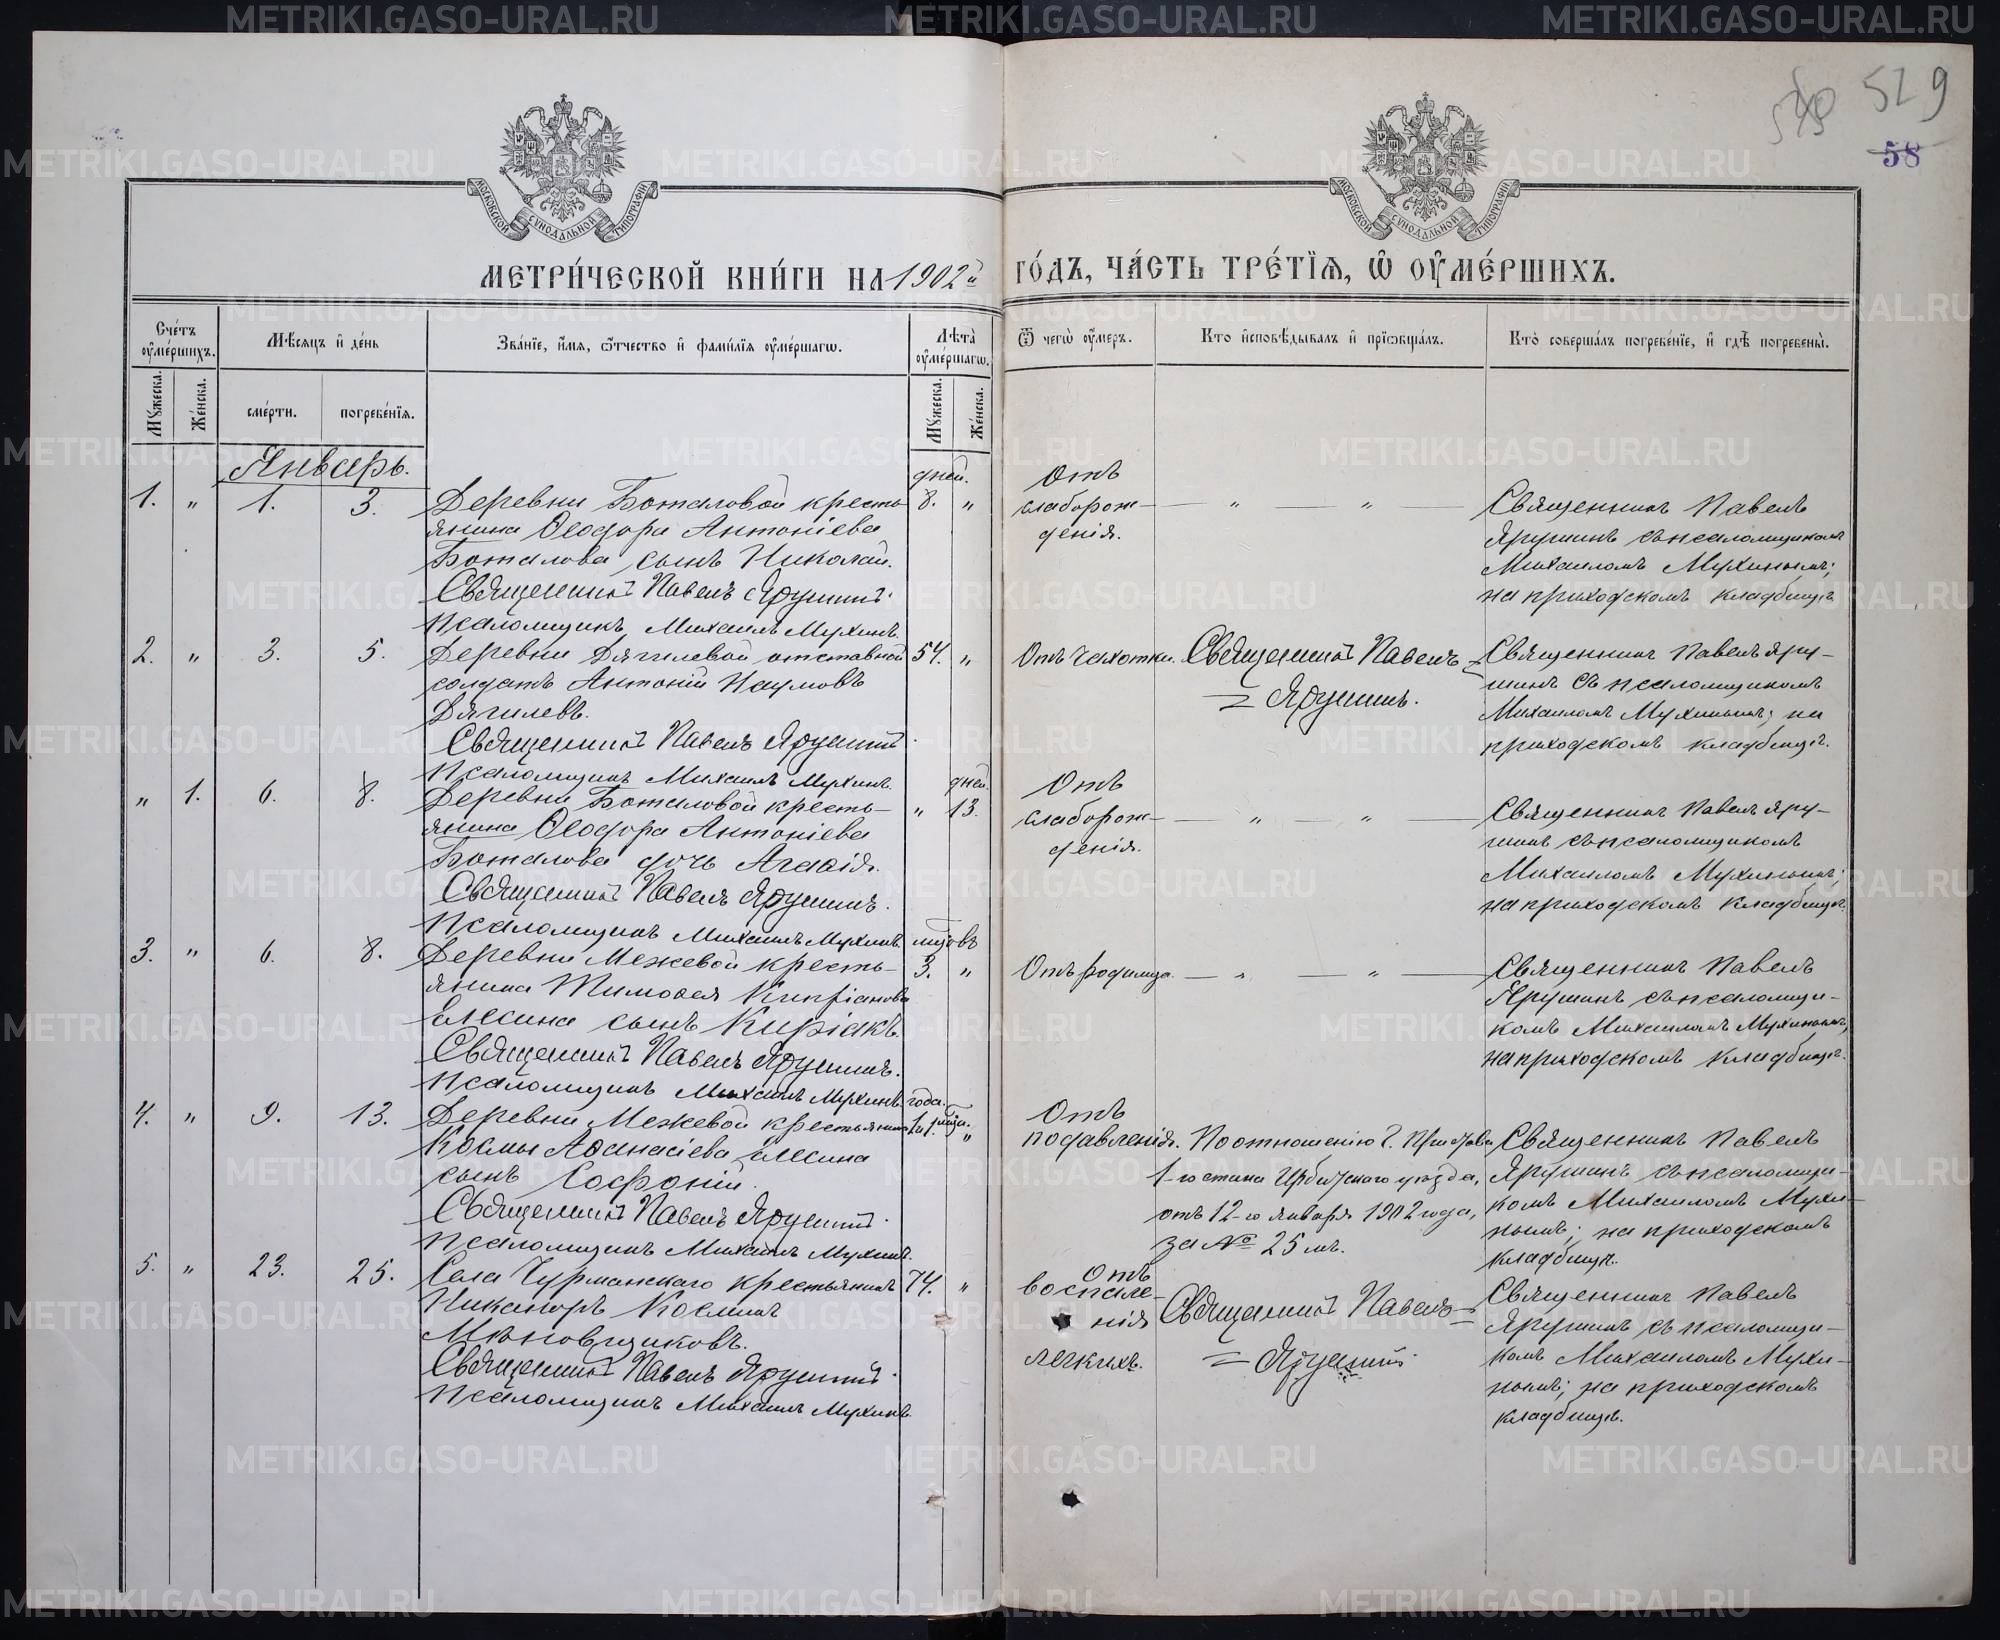 529
58
МОСКОВСКОЙ СУНОДАЛЬНОЙ ТИПОГРАФІИ
МОСКОВСКОЙ СУНОДАЛЬНОЙ ТИПОГРАФІИ
МЕТРИ́ЧЕСКОЙ КНИ́ГИ НА 1902й ГО́ДЪ, ЧА́СТЬ ТРЕ́ТІѦ, Ѡ ОУМЕ́РШИХЪ.
Сче́тъ оуме́ршихъ.
Мѣсяцъ и де́нь
Зва́ніе, и́мя, ѻ́тчество и фами́лія оуме́ршагѡ.
Лѣта̀ оуме́ршагѡ.
Ѿ чегѡ̀ оу́меръ.
Кто̀ исповѣ́дывалъ и прїѡбща́лъ.
Кто̀ соверша́лъ погребе́ніе, и гдѣ̀ погребены̀.
Мꙋжеска.
Же́нска.
сме́рти.
погребе́нія.
Мꙋжеска.
Же́нска.
Январь.
1. " 1. 3.
Деревни Боталовой кресть-
янина Ѳеодора Антоніева
Боталова сынъ Николай.
Священникъ Павелъ Ярушинъ.
Псаломщикъ Михаилъ Мухинъ.
дней.
8. "
Отъ
слаборож-
денія.
— " — " —
Священникъ Павелъ
Ярушинъ съ псаломщикомъ
Михаиломъ Мухинымъ;
на приходскомъ кладбищѣ
2. " 3. 5.
Деревни Дягилевой отставной
солдатъ Антоній Наумовъ
Дягилевъ.
Священникъ Павелъ Ярушинъ.
Псаломщикъ Михаилъ Мухинъ.
54. "
Отъ чахотки.
Священникъ Павелъ
Ярушинъ.
Священникъ Павелъ Яру-
шинъ съ псаломщикомъ
Михаиломъ Мухинымъ; на
приходскомъ кладбищѣ.
" 1. 6. 8.
Деревни Боталовой кресть-
янина Ѳеодора Антоніева
Боталова дочь Агаѳія.
Священникъ Павелъ Ярушинъ.
Псаломщикъ Михаилъ Мухинъ.
дней.
" 13.
Отъ
слаборож-
денія.
— " — " —
Священникъ Павелъ Яру-
шинъ съ псаломщикомъ
Михаиломъ Мухинымъ;
на приходскомъ кладбищѣ.
3. " 6. 8.
Деревни Межевой кресть-
янина Тимоѳея Кипріанова
сынъ Киріакъ.
Священникъ Павелъ Ярушинъ.
Псаломщикъ Михаилъ Мухинъ.
3. "
Отъ родимца.
— " — " —
Священникъ Павелъ
Ярушинъ съ псаломщи-
комъ Михаиломъ Мухинымъ,
на приходскомъ кладбищѣ.
4. " 9. 13.
Деревни Межевой крестьянина
Космы Аѳанасіева
сынъ Софоній.
Священникъ Павелъ Ярушинъ.
Псаломщикъ Михаилъ Мухинъ.
года.
"
Отъ
подавленія.
По отношенію Г. Пристава
1-го стана Ирбитскаго уѣзда,
отъ 12-го января 1902 года,
за № 25 мъ.
Священникъ Павелъ
Ярушинъ съ псаломщи-
комъ Михаиломъ Мухи-
нымъ; на приходскомъ
кладбищѣ.
5. " 23. 25.
Села Чурманскаго крестьянинъ
Никаноръ Космин
Мѣновщиковъ.
Священникъ Павелъ Ярушинъ.
Псаломщикъ Михаилъ Мухинъ.
74. "
Отъ
воспале-
нія
легкихъ.
Священникъ Павелъ
Ярушинъ.
Священникъ Павелъ
Ярушинъ съ псаломщи-
комъ Михаиломъ Мухи-
нымъ; на приходскомъ
кладбищѣ.
METRIKI.GASO-URAL.RU